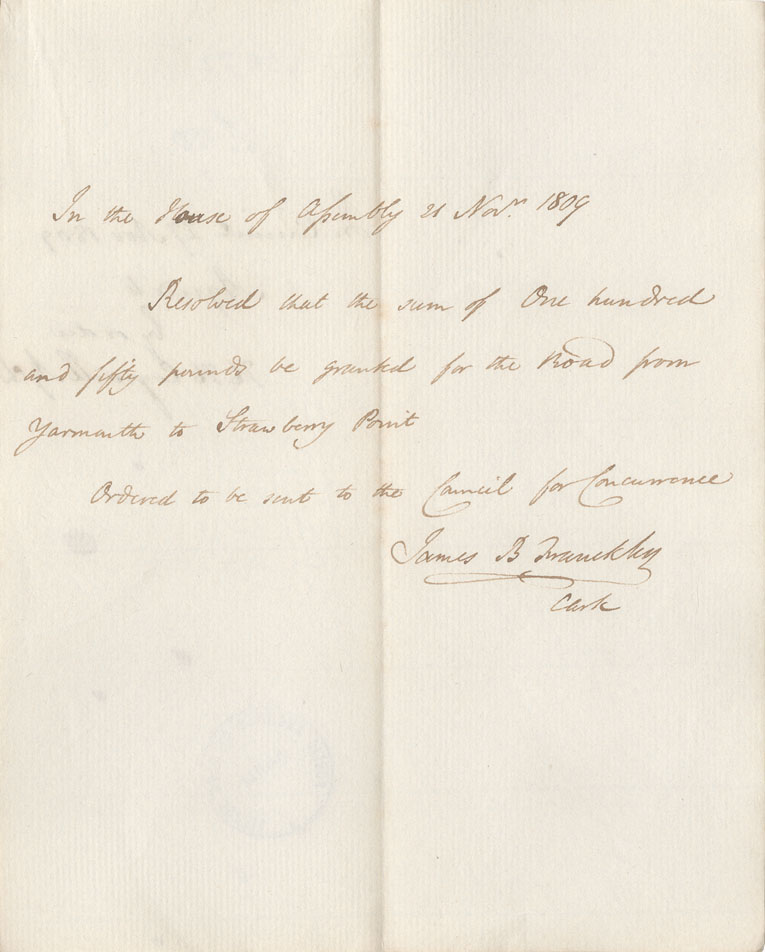 In the House of Assembly 21 Novr. 1809
Resolved that the sum of One hundred
and fifty pounds be granted for the Road from
Yarmouth to Strawberry Point
Ordered to be sent to the Council for Concurrence
James B Franckley
Clerk